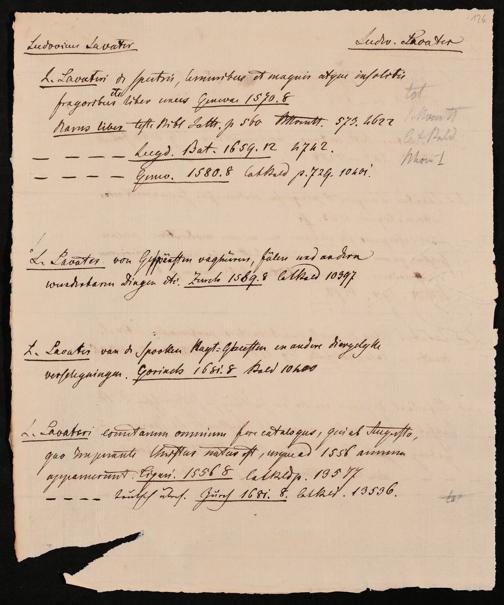 126
Ludovicus Lavater Ludw. Lavater
L. Lavateri de spectris, lemuribus et magnis atque insolitis
fragoribus etc liber unus Genevae 1570. 8
Rarus liber teste Bibl. p. 560 573. 4622
— — — — Lugd. Bat. 1659. 12 4742.
— — — — Genev. 1580. 8 Cat Bald p. 729. 10401
tot
Cat Bald
L. Lavater von Gespänsten unghüren, fälen und andern
wunderbaren dingen etc. Zurch 1569. 8 Cat Bald 10397
L. Lavater van de Spooken Nagt-Geesten en andere diergelyke
Gorinch 1681. 8 Bald 10400
L. Lavateri cometarum omnium fere catalogus, qui ab Augusto,
quo imperante Christus natus est, usque ad 1556 annum
apparuerunt. Tiguri. 1556 8 Cat Bald p. 13517
— — — — teutsch Zürch 1681. 8. Cat Bald. 13536.